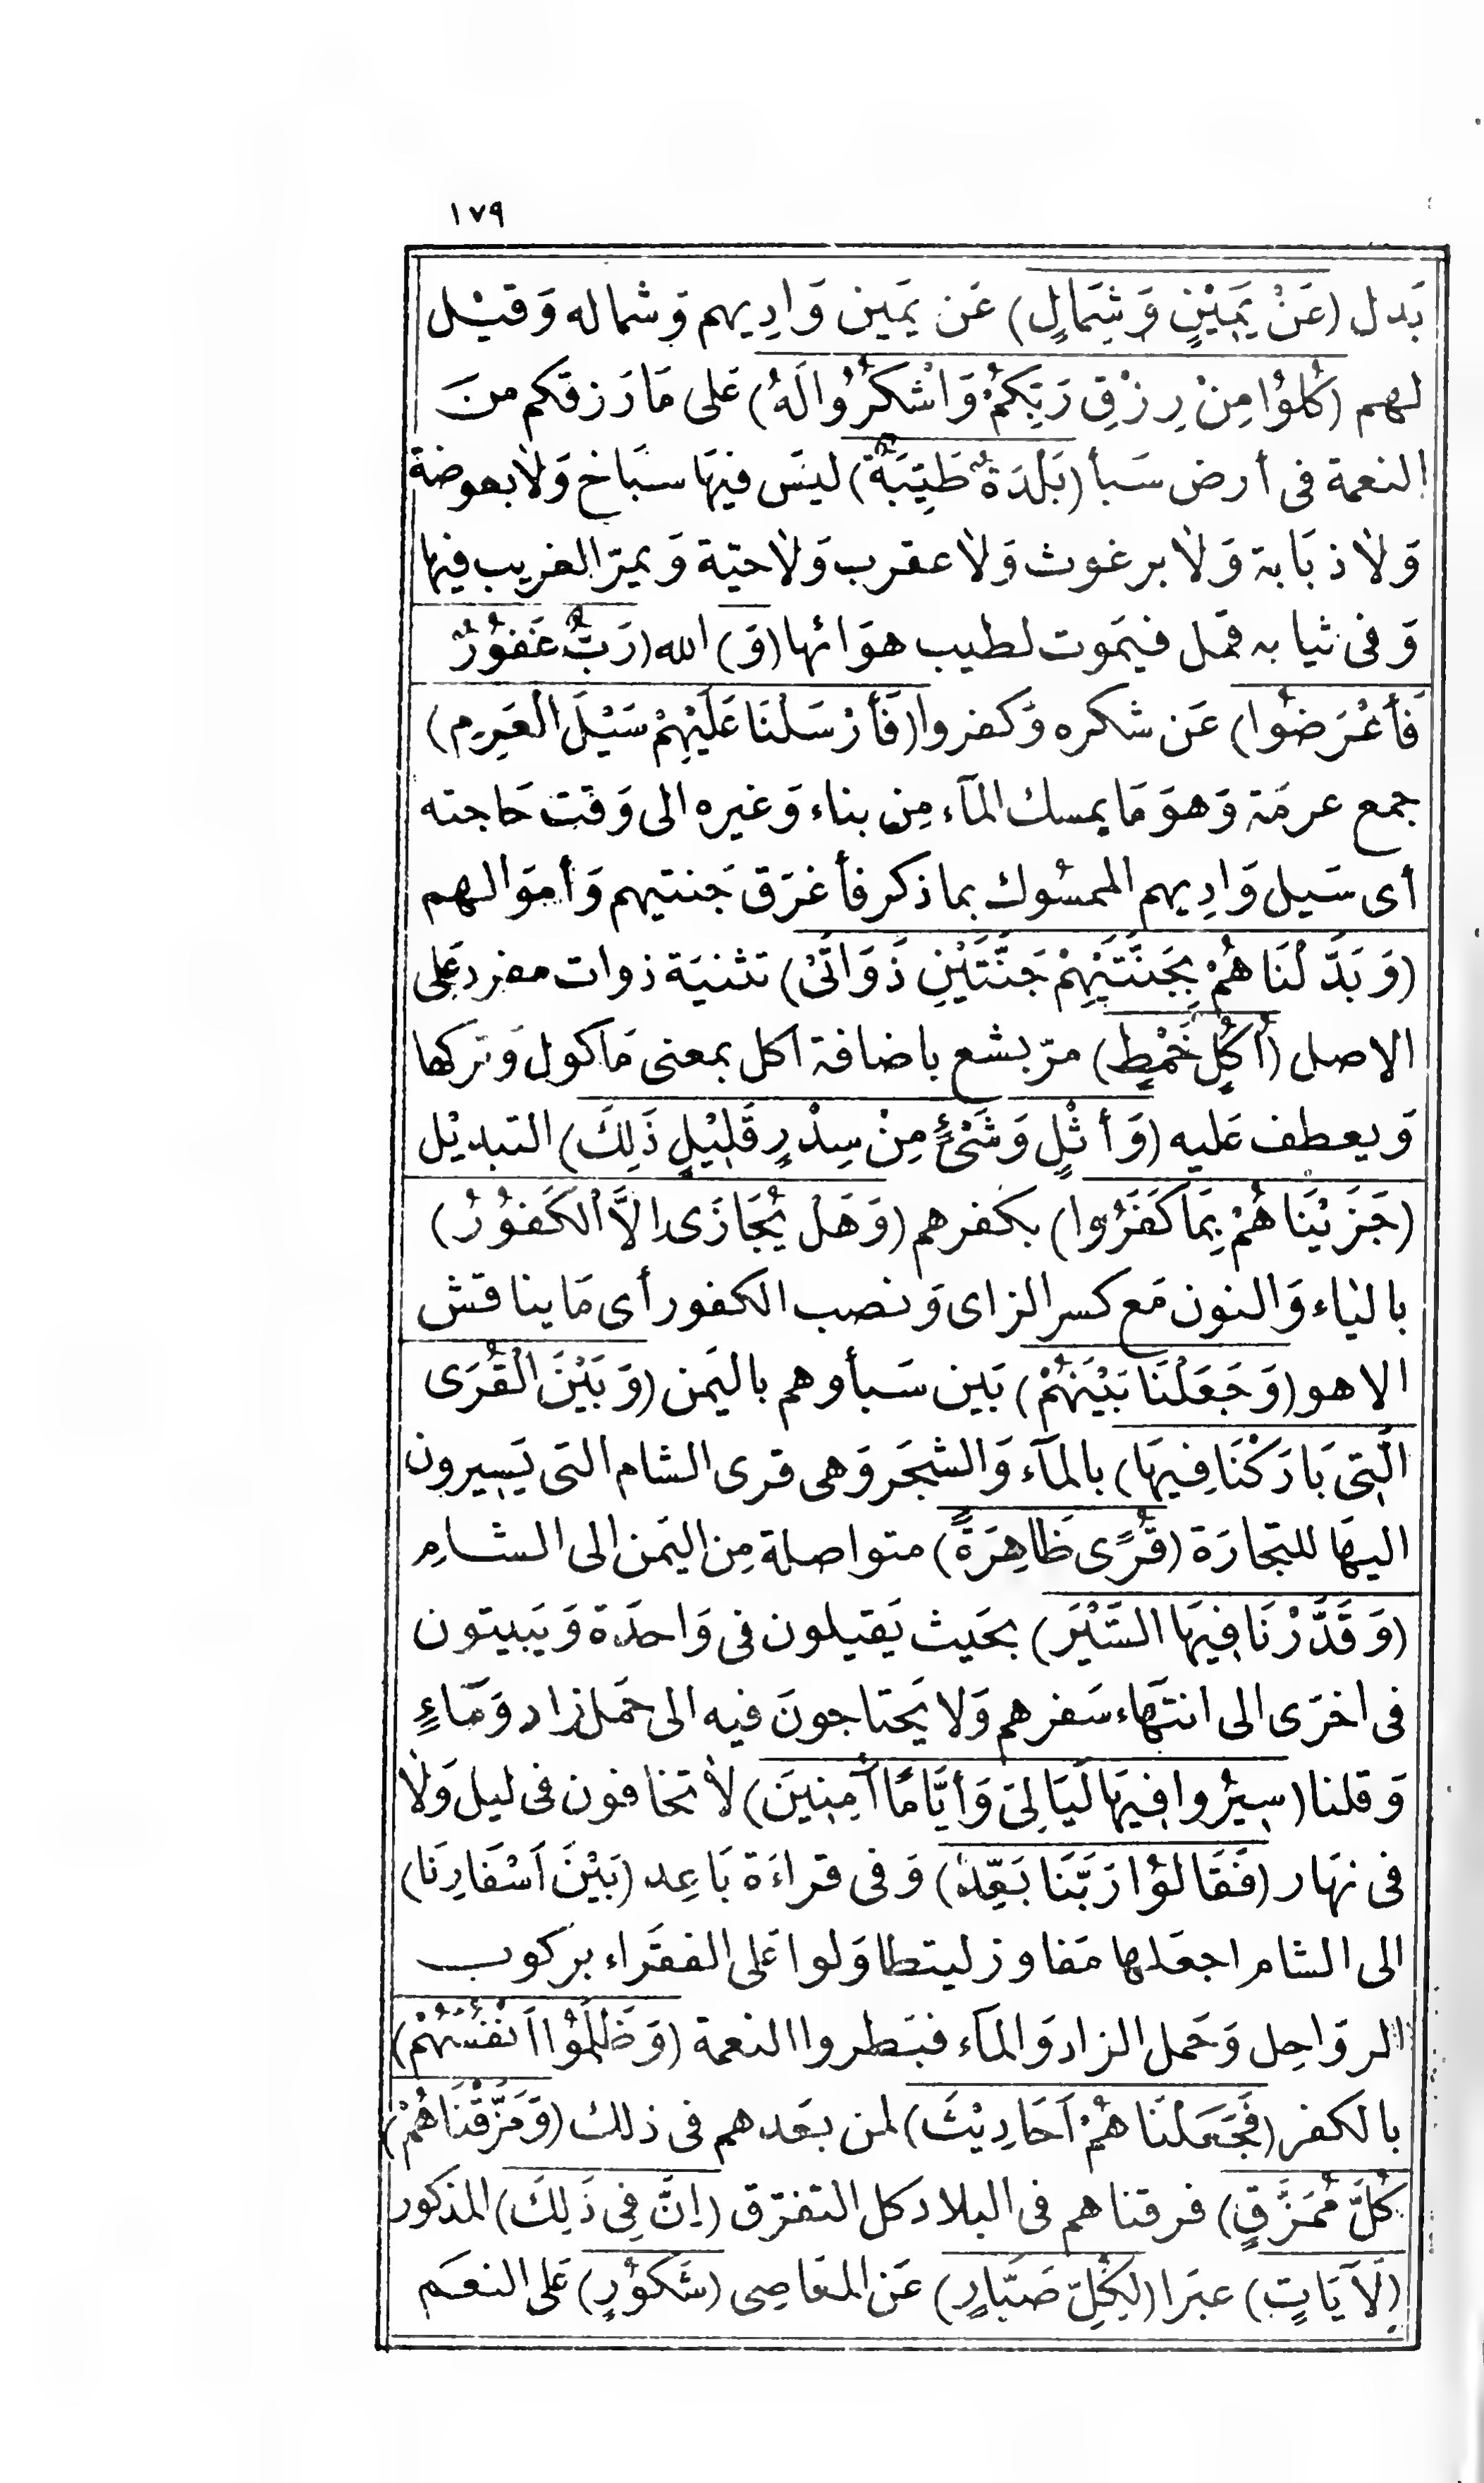 ١٧٩
بَدل (عَنْ يَمِيْنٍ وَشِمَالٍ) عَن يَمين وَادِيهم وَشماله وَقيْل
لهم (كُلُوُا مِنْ رِزْقِ رَبِّكمُ وَاشْكرُوُا لَهُ) عَلى مَا رَزقكم منَ
النعمة فى أرض سَبأ (بَلْدَةٌ طَيِّبَةٌ) ليسَ فيهَا سبَاخ وَلا بعوضة
وَلا ذبَابة وَلا برغوث وَلا عقرب وَلا حيّة وَيمرّ الغريب فيها
وَفى ثيابه قمل فيمَوت لطيب هوَائها (وَ) الله (رَبٌّ غَفوُرٌ
فَأعْرَضوُا) عَن شكره وَكفروا (فَأرْسَلنَا عَلَيْهِمْ سَيْلَ الْعَرِمِ)
جمع عرمَة وَهوَ مَا يمسك المَآء مِن بناء وَغيره الى وَقت حَاجته
أى سَيل وَادِيهم الممسُوك بما ذكر فأغرَق جَنتيهم وَأموَالهم
(وَبَدَّلْنَاهُمْ بِجَنَّتَيْهِمْ جَنَّتَيْنِ ذَوَاتَىْ) تثنيَة ذوات مفرد عَلى
الاصل (أُكُلٍ خَمْطٍ) مرّ بشع باضافة اكل بمعنى مَاكول وَتركها
وَيعطف عَليه (وَأثْلٍ وَشَىْءٍ مِنْ سِدْرٍ قَلِيْلٍ ذَلِكَ) التبديْل
(جَزَيْنَاهُمْ بِمَا كَفَرُوا) بكفرهم (وَهَلْ يُجَازَى اِلاَّ الْكَفوُرُ)
باليَاء وَالنون مَع كسر الزاى وَنصب الكفور أى مَا يناقش
الا هو (وَجَعَلْنَا بَيْنَهُمْ) بَين سَبأ وهم باليَمن (وَبَيْنَ الْقُرَى
الَّتِى بَارَكْنَا فِيهَا) بالمَآء وَالشجَر وَهى قرى الشام التى يَسِيرون
اليهَا للتجارَة (قُرًى ظَاهِرَةً) متواصلة مِن اليَمن الى الشامِ
(وَقَدَّرْنَا فِيهَا السَّيْرَ) بحَيث يَقيلون فى وَاحدَة وَيَبيتون
فى اخرَى الى انتهَاء سَفرهم وَلا يَحتاجونَ فيه الى حَمل زاد وَمَاءٍ
وَقلنا (سِيرُوا فِيهَا لَيَالِىَ وَأيَّامًا آمِنِينَ) لا تخافون فى ليل وَلا
فى نهَار (فَقَالوُا رَبَّنَا بَعِّدْ) وَفى قراءَة بَاعِد (بَيْنَ اَسْفَارِنَا)
الى الشام اجعَلها مَفاوز ليتطاوَلوا عَلى الفقَراء بركوب
الروَاحِل وَحَمل الزاد وَالمَآء فبَطروا النعمة (وَظَلَمُوُا اَنْفُسَهُمْ)
بالكفر (فَجَعَلْنَاهُمْ اَحَادِيْثَ) لمن بعَدهم فى ذلك (وَمَزَّقْنَاهُمْ
كُلَّ مُمَزَّقٍ) فرقناهم فى البلاد كل التفرّق (اِنَّ فِى ذَلِكَ) المذكور
(لَآيَاتٍ) عبرَا (لِكُلِّ صَبَّارٍ) عَن المعَاصِى (شَكوُرٍ) عَلى النعَم